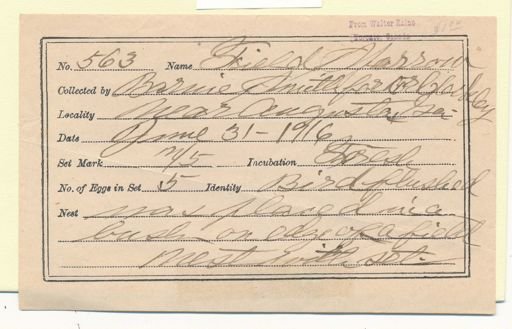 From Walter Raine
Toronto, Canada
No. 563 Name Field Sparrow
Collected by Barnie Smith for
Locality Near Augusta, Ga
Date June 31 - 1916
Set Mark n/5 Incubation Fresh
No. of Eggs in Set 5 Identity Bird flushed
Nest was placed in a
bush on edge of a field
nest with set.